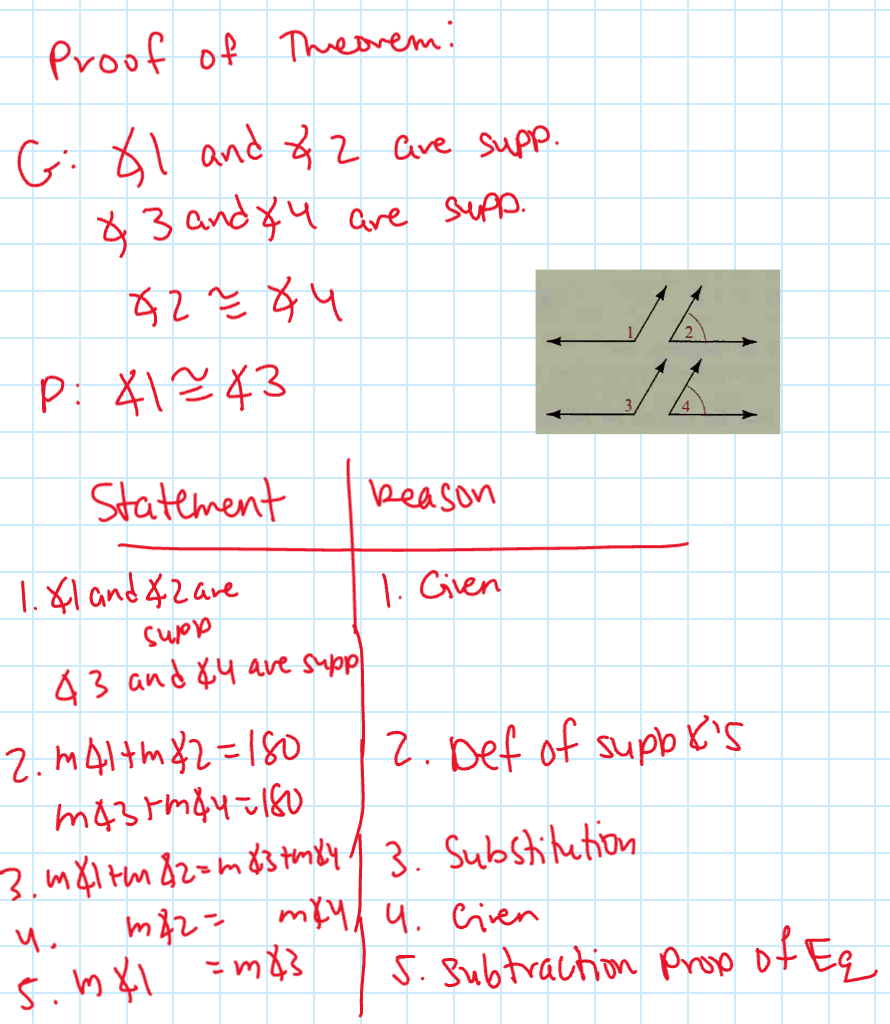 Proof of Theorem:
G: ∡1 and ∡2 are supp.
∡3 and ∡4 are supp.
∡2 ≅ ∡4
P: ∡1 ≅ ∡3
1 2
3 4
Statement Reason
1. ∡1 and ∡2 are 1. Given
supp
∡3 and ∡4 are supp
2. m∡1+m∡2=180 2. Def of supp ∡'s
m∡3+m∡4=180
3. m∡1+m∡2=m∡3+m∡4 3. Substitution
4. m∡2= m∡4 4. Given
5. m∡1 =m∡3 5. Subtraction Prop of Eq